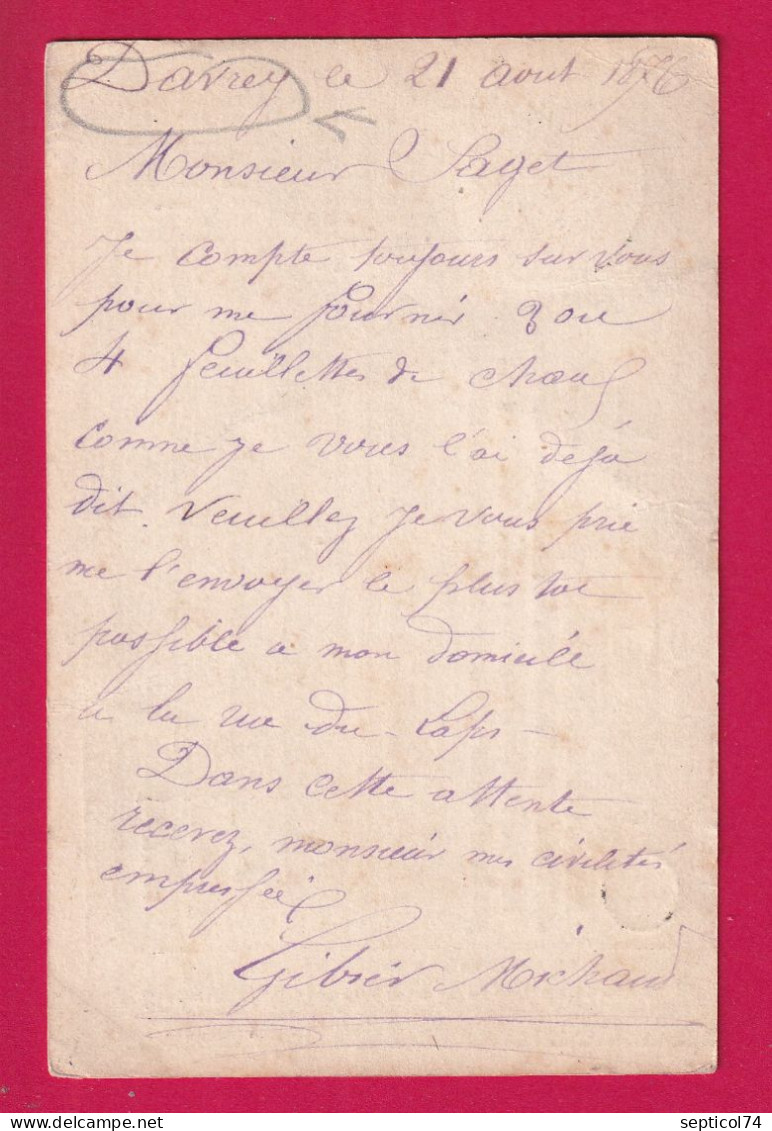 Davrey le 21 aout 1876
Monsieur Saget
Je compte toujours sur vous
pour me fournir 3 ou
4 feuillettes de chaux
comme je vous l'ai déjà
dit. Veuillez je vous prie
me l'envoyer le plus tot
possible a mon domicile
a la rue du - Laps -
Dans cette attente
recevez, monsieur mes civilités
empressées
Gibier Michaud
delcampe.net
septicol74